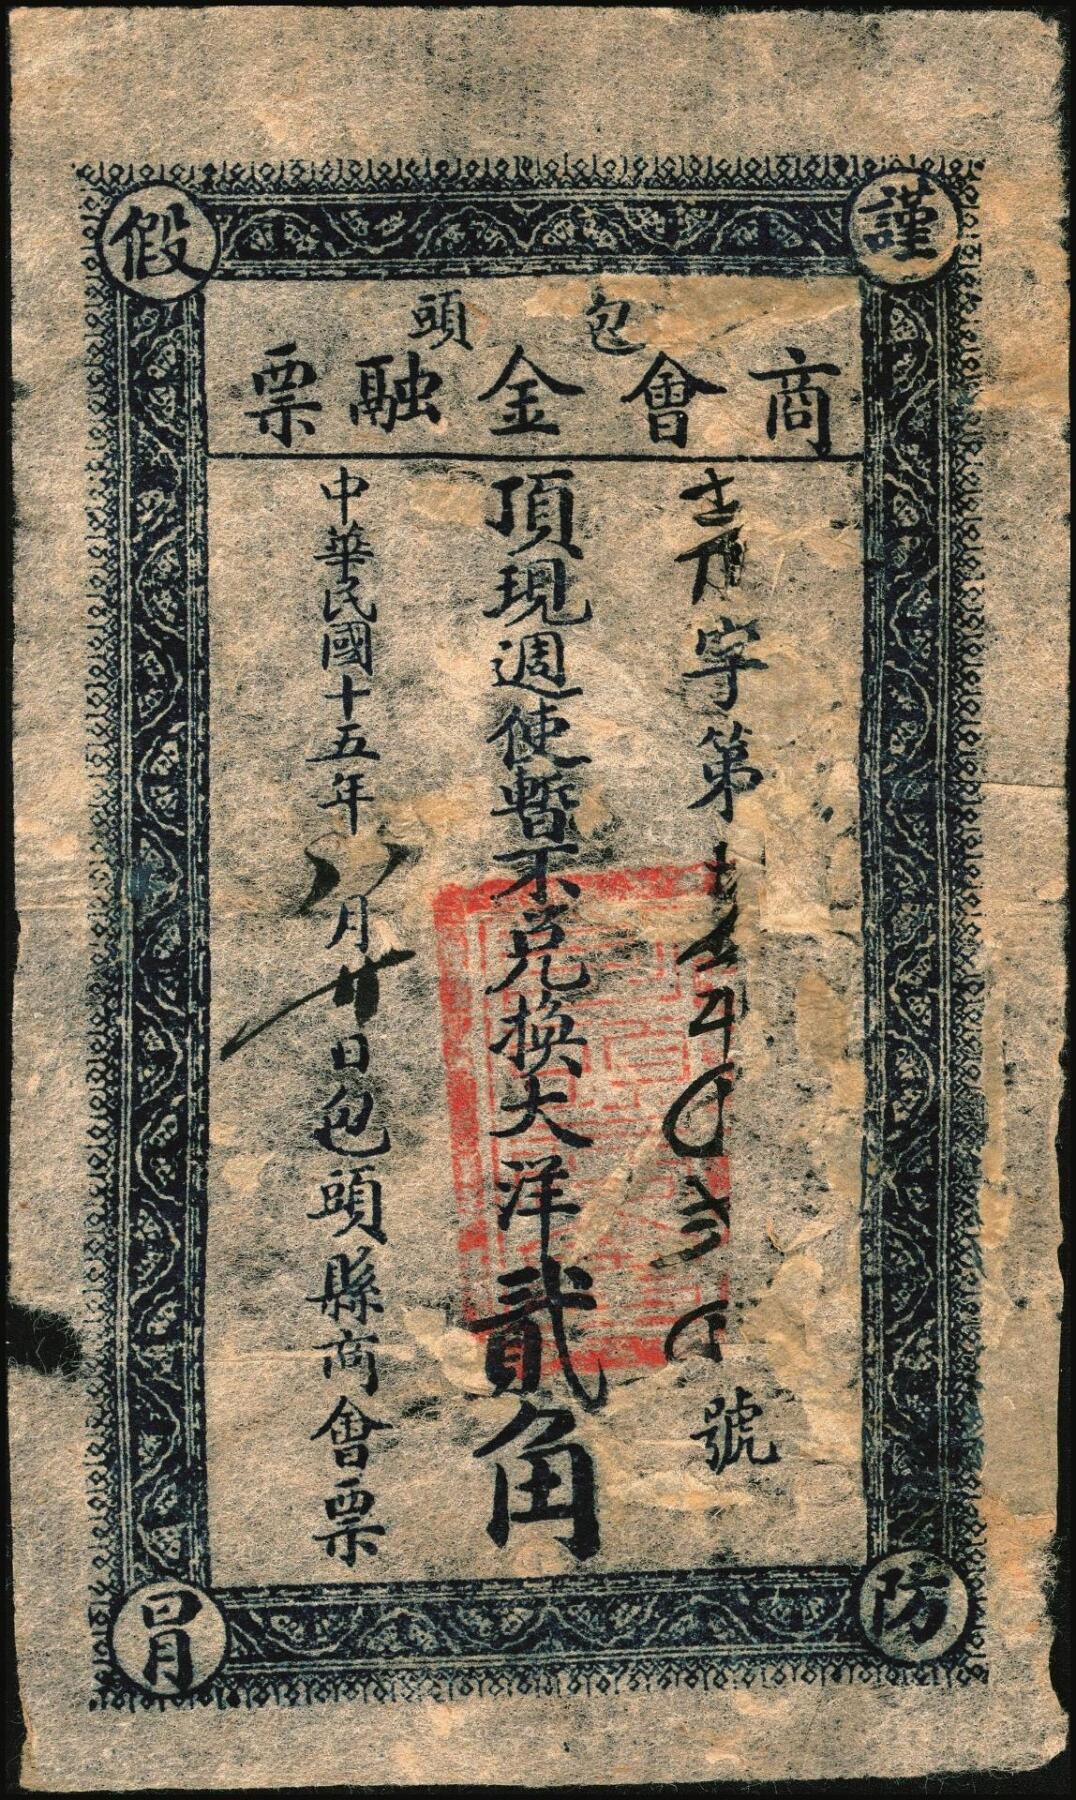 謹防假冒
包頭
商會金融票
字第
號
頂現週使暫不兌換大洋貳角
中華民國十五年八月廿日包頭縣商會票